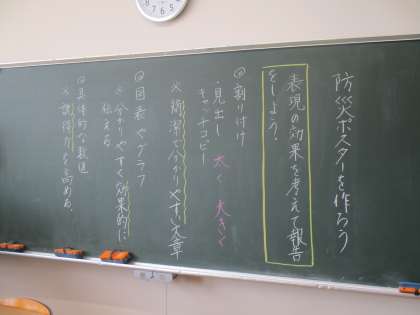 防災ポスターを作ろう
表現の効果を考えて報告
をしよう。
◎割り付け
・見出し 太く 大きく
キャッチコピー
※簡潔で分かりやすい文章
◎図表やグラフ
※分かりやすく効果的に
伝える
◎具体的な数値
※説得力を高める。